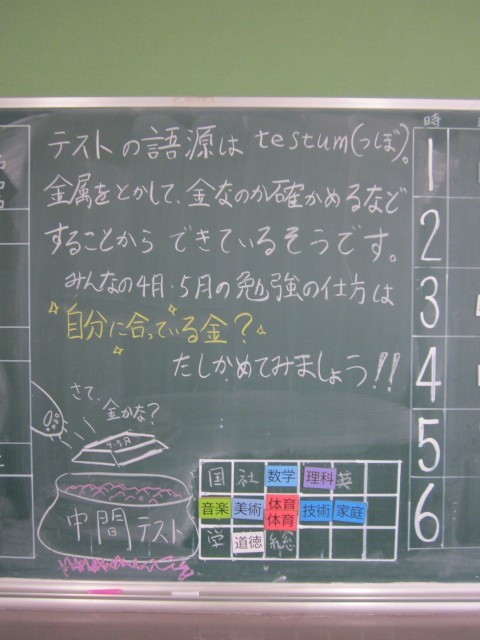 テストの語源は testum(つぼ)。
金属をとかして、金なのか確かめるなど
することから できているそうです。
みんなの4月・5月の勉強の仕方は
自分に合っている金?
たしかめてみましょう!!
さて、
金かな?
4・5月
中間テスト
国 社 数学 理科 英
音楽 美術 体育 技術 家庭
体育
学 道徳 総
時
1
2
3
4
5
6